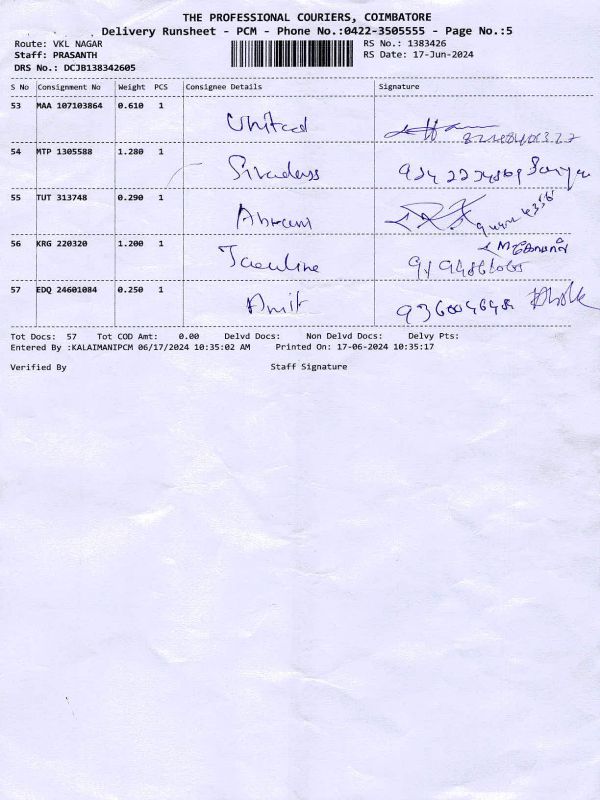 THE PROFESSIONAL COURIERS, COIMBATORE
Delivery Runsheet - PCM - Phone No.:0422-3505555 - Page No.:5
Route: VKL NAGAR
RS No.: 1383426
Staff: PRASANTH
RS Date: 17-Jun-2024
DRS No.: DCJB138342605
S No Consignment No Weight PCS Consignee Details Signature
53 MAA 107103864 0.610 1 United
54 MTP 1305588 1.280 1
55 TUT 313748 0.290 1
56 KRG 220320 1.200 1
57 EDQ 24601084 0.250 1 Amit
Tot Docs: 57 Tot COD Amt: 0.00 Delvd Docs: Non Delvd Docs: Delvy Pts:
Entered By :KALAIMANIPCM 06/17/2024 10:35:02 AM Printed On: 17-06-2024 10:35:17
Verified By Staff Signature